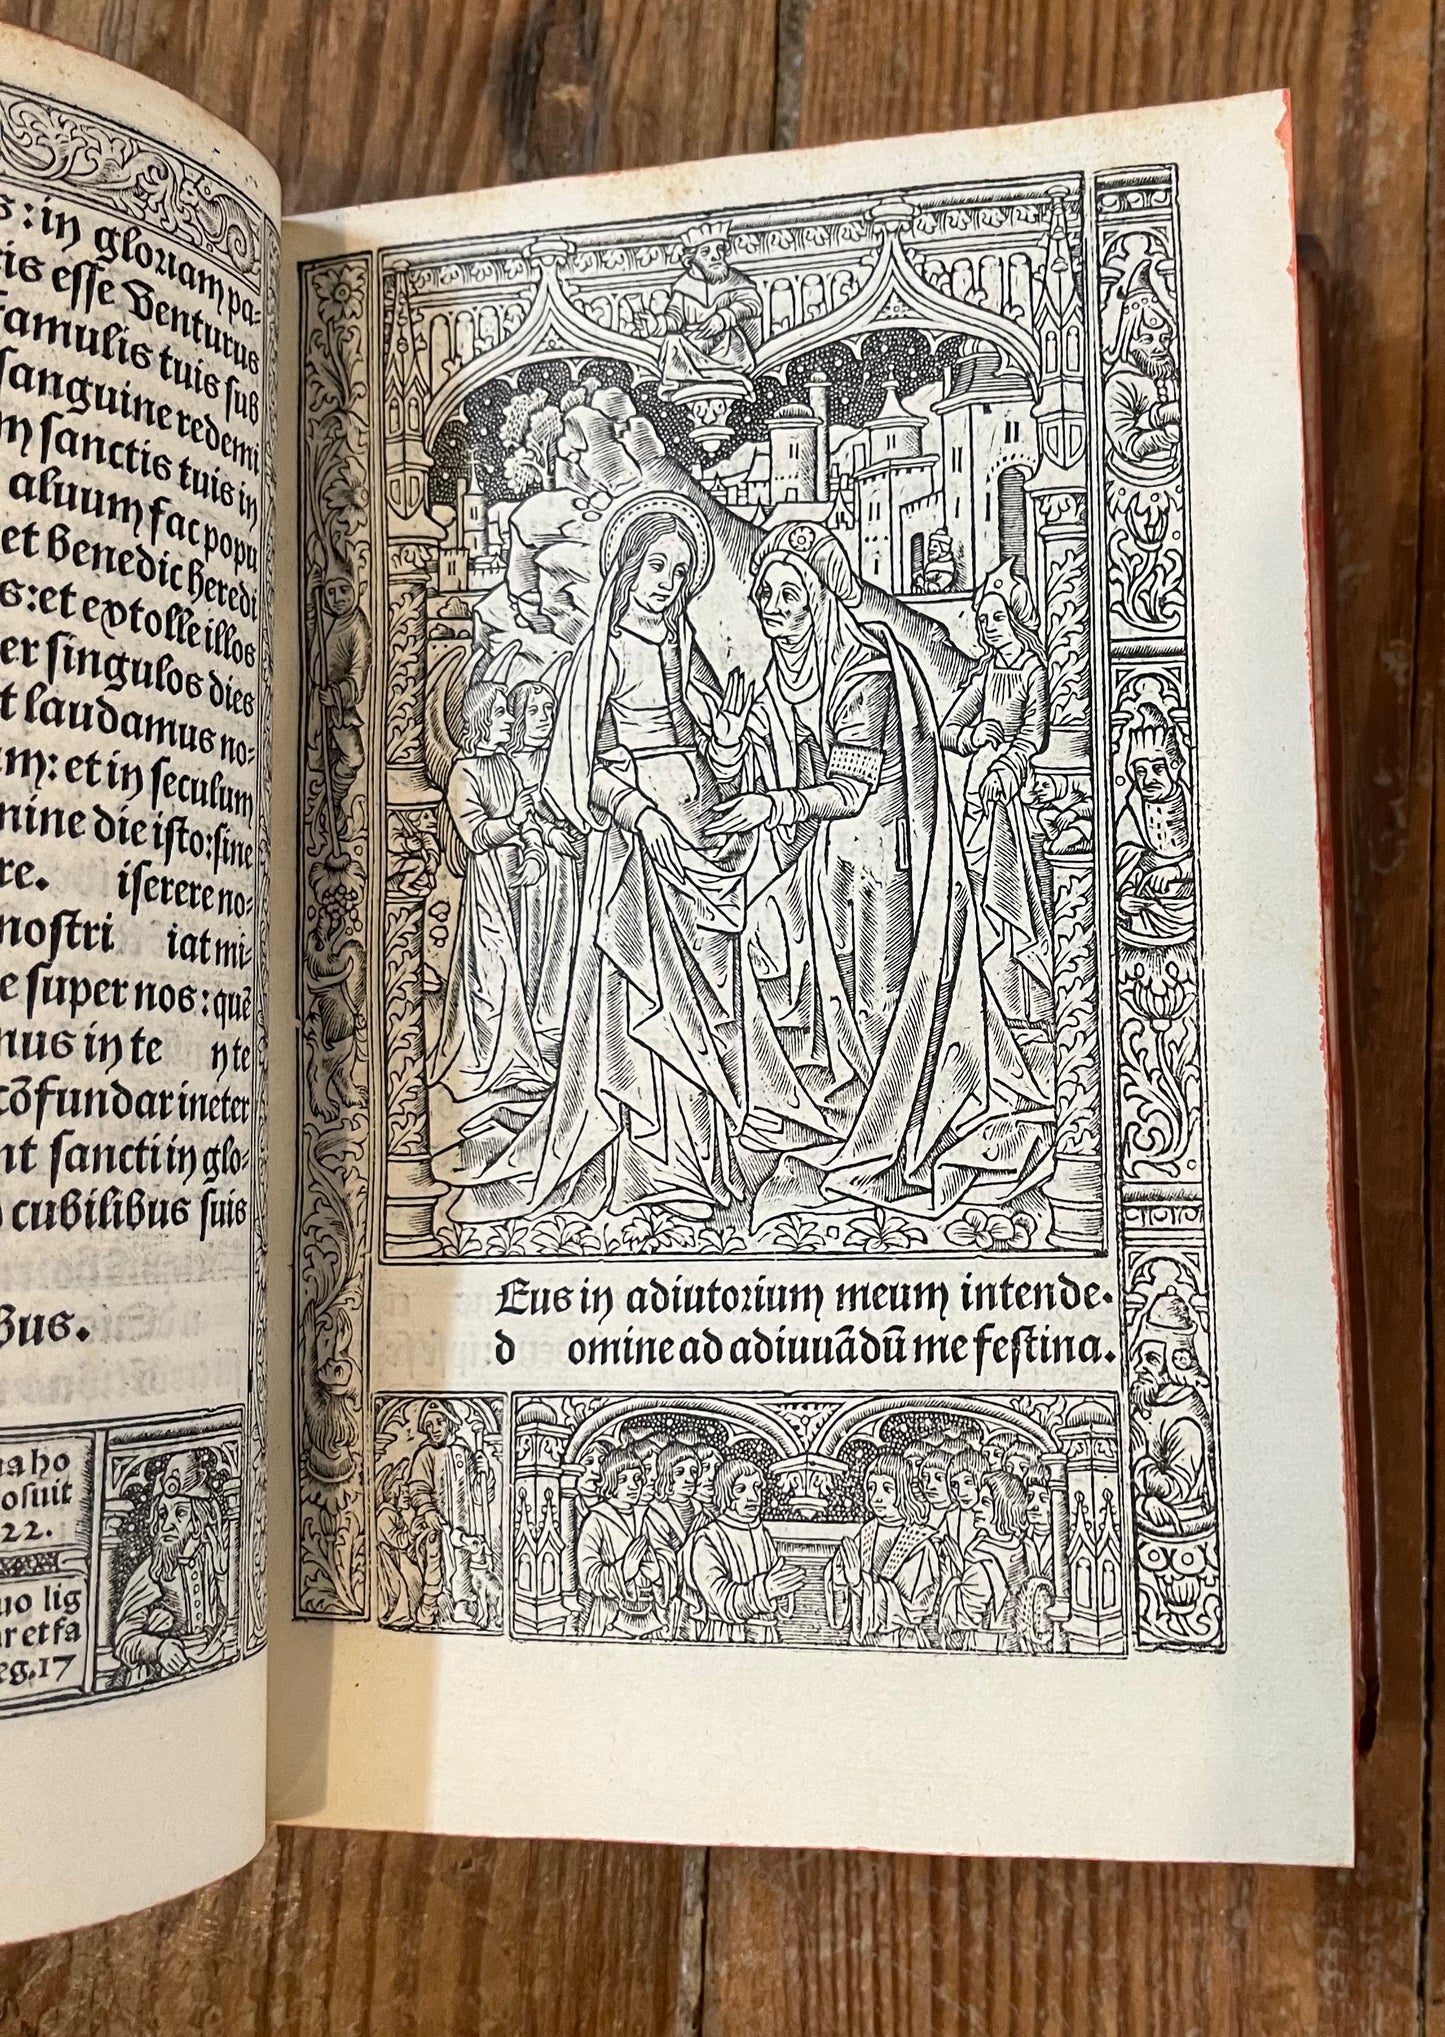 : in gloriam pa-
esse Venturus
famulis tuis sub
sanguine redemi
sanctis tuis in
aluum fac popu
et benedic heredi
: et extolle illos
er singulos dies
t laudamus no-
: et in seculum
die isto: sine
re. iserere no-
nostri iat mi-
e super nos: quē
nus in te n te
cōfundar in eter
nt sancti in glo-
cubilibus suis
bus.
ho
osuit
22.
uo lig
r et fa
eg. 17
Eus in adiutorium meum intende.
d omine ad adiuuādū me festina.